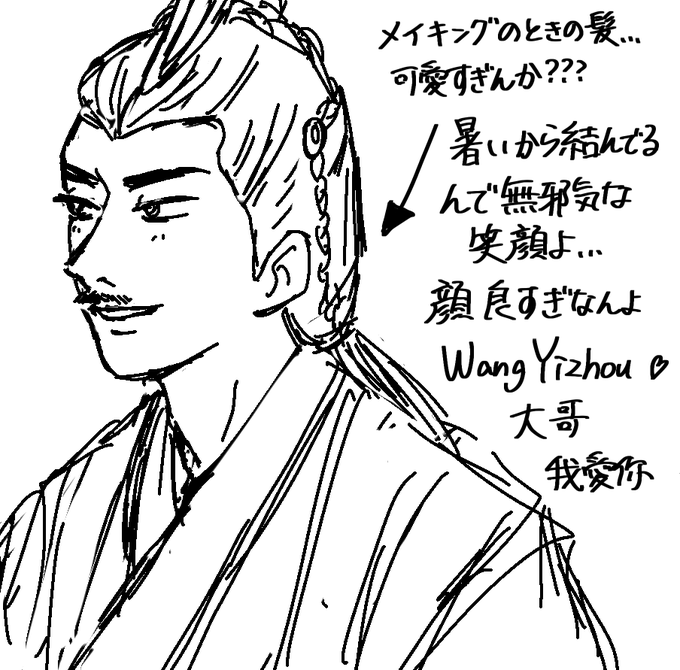 メイキングのときの髪…
可愛すぎんか???
暑いから結んでる
んで無邪気な
笑顔よ…
顔良すぎなんよ
Wang Yizhou ♡
大哥
我愛你